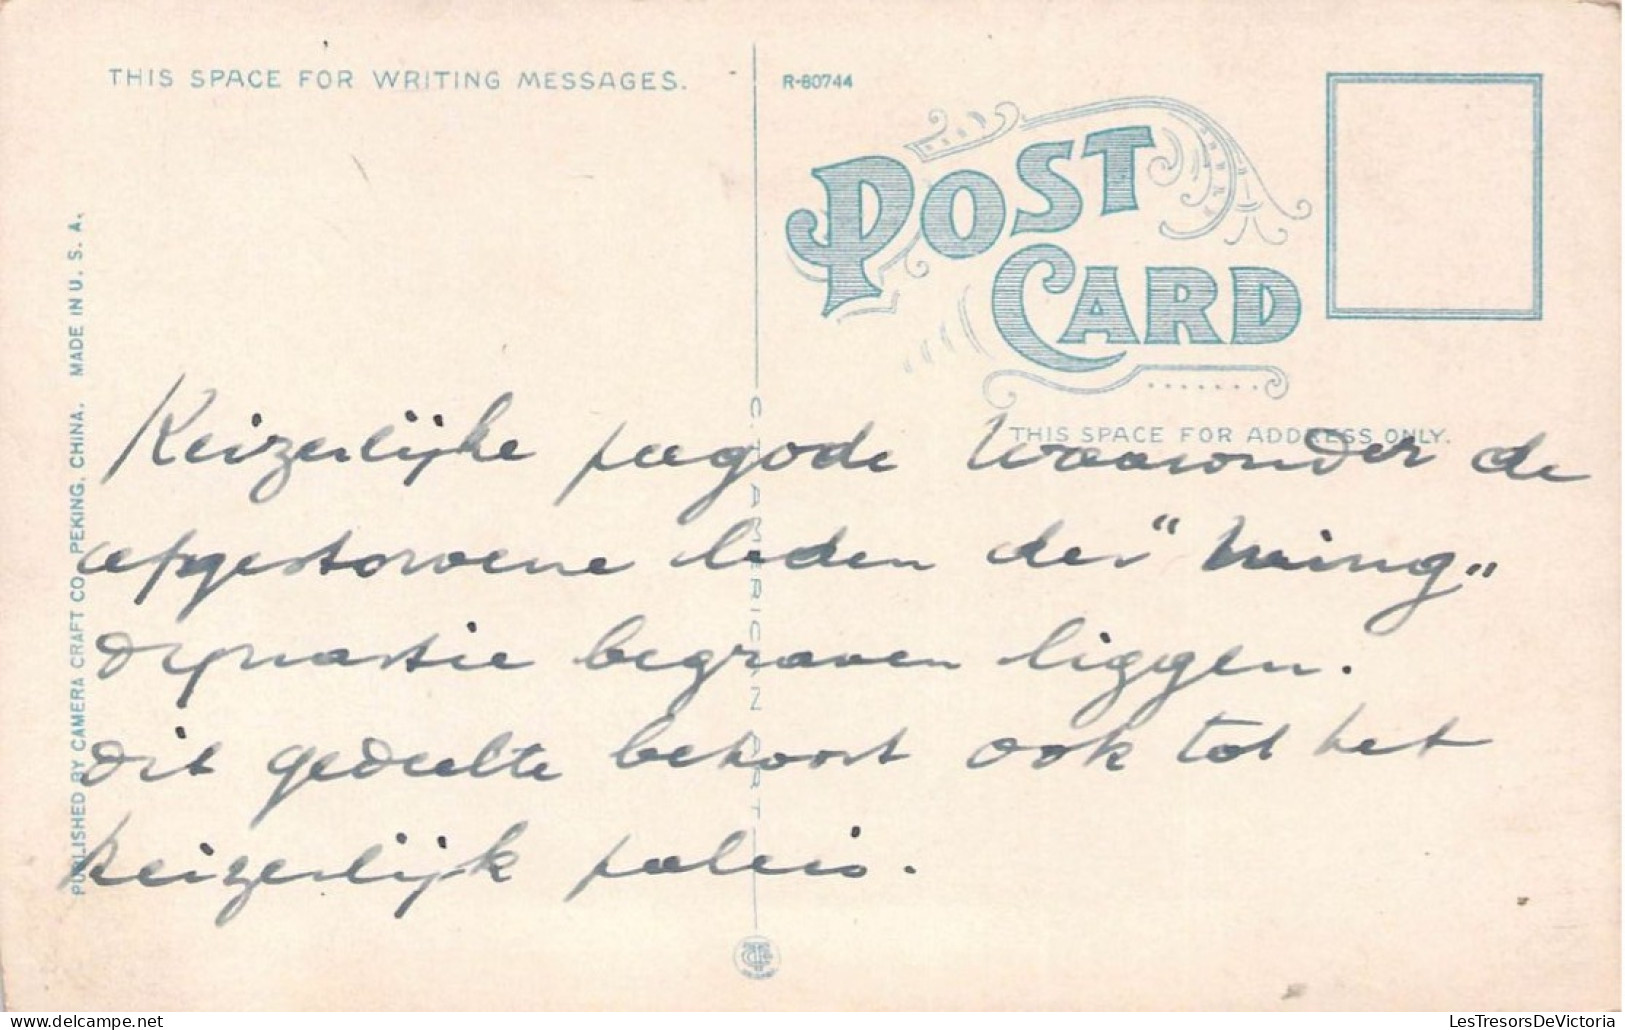 THIS SPACE FOR WRITING MESSAGES.
R-80744
POST
CARD
THIS SPACE FOR ADDRESS ONLY.
PUBLISHED BY CAMERA CRAFT CO. PEKING, CHINA. MADE IN U. S. A.
C. T. AMERICAN ART
Keizerlijke pagode waaronder de
afgestorvene leden der "Ming„
dynastie begraven liggen.
dit gedeelte behoort ook tot het
keizerlijk paleis.
LesTresorsDeVictoria.com